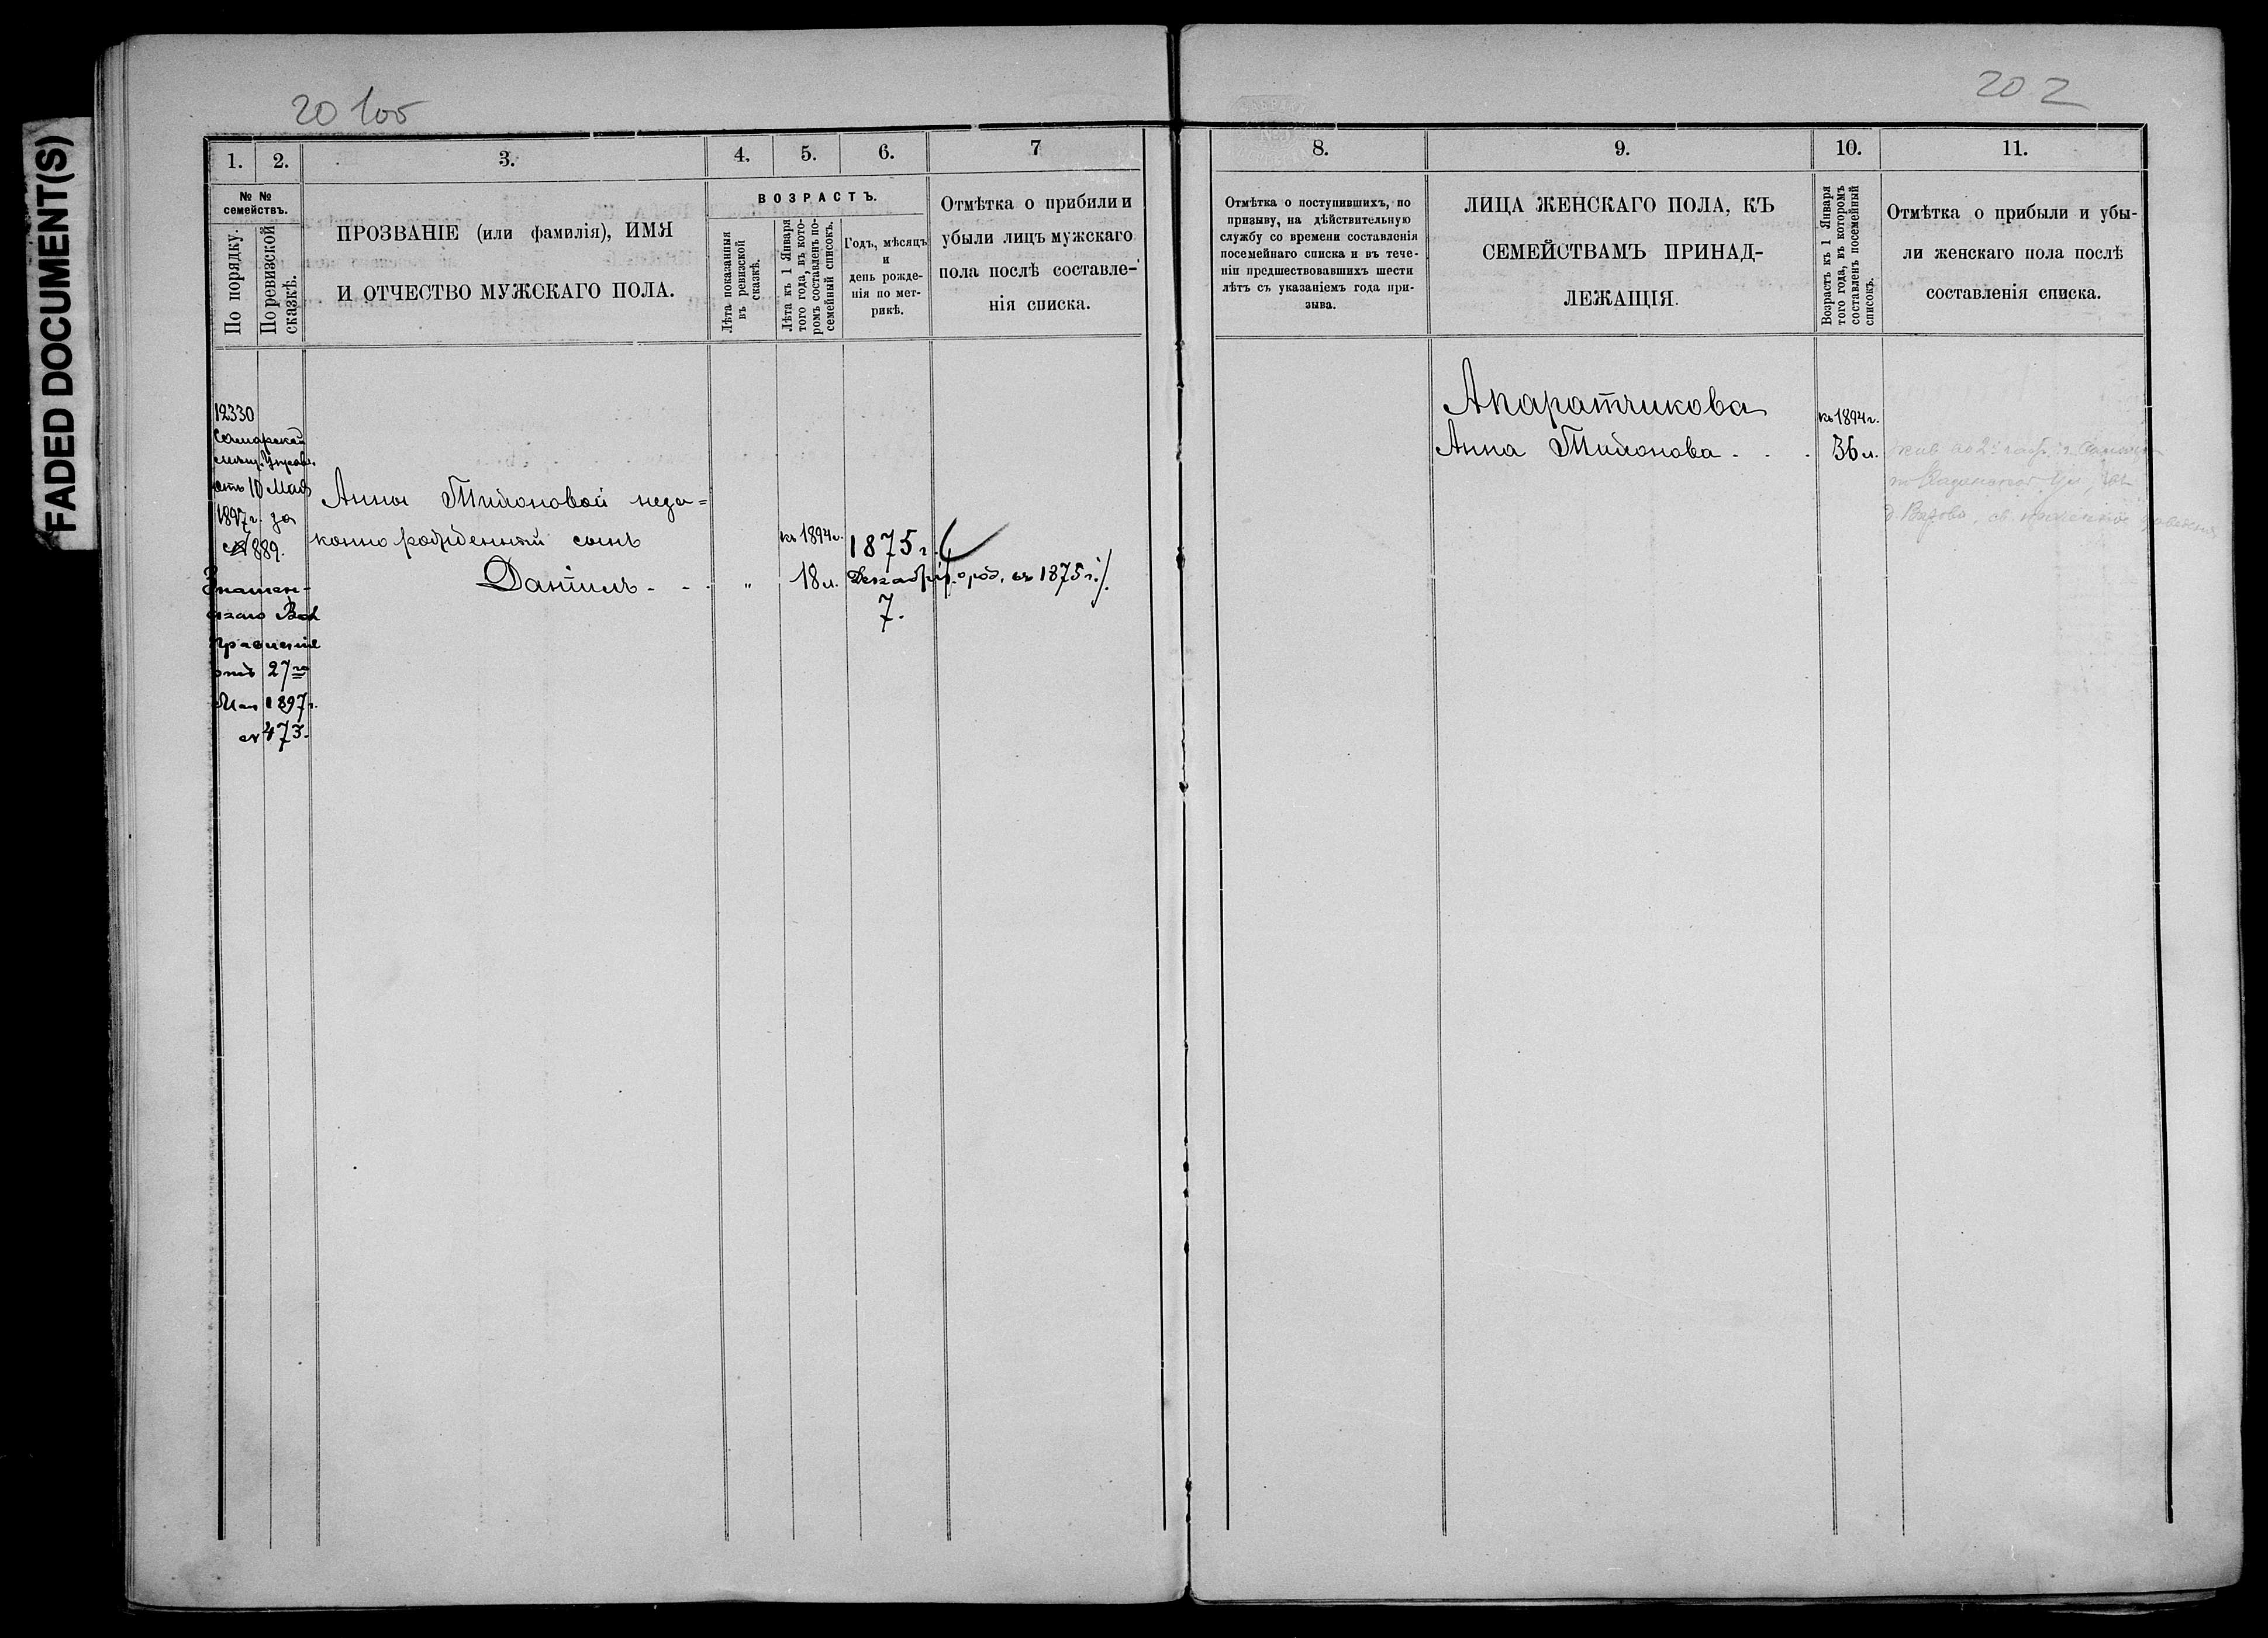 FADED DOCUMENT(S)
20 100
202
1. 2. 3. 4. 5. 6. 7
№ №
семействъ.
По порядку.
По ревизской
сказкѣ.
ПРОЗВАНІЕ (или фамилія), ИМЯ
И ОТЧЕСТВО МУЖСКАГО ПОЛА.
ВОЗРАСТЪ.
Лѣта показанныя
въ ревизской
сказкѣ.
Лѣта къ 1 Января
того года, въ кото-
ромъ составленъ по-
семейный списокъ.
Годъ, мѣсяцъ
и
день рожде-
нія по мет-
рикѣ.
Отмѣтка о прибили и
убыли лицъ мужскаго
пола послѣ составле-
нія списка.
12330
Самарской
мѣщ. Управ.
отъ 10 Мая
1897 г. за
№ 889.
Знамен-
скаго Вол
Правленія
отъ 27го
Мая 1897 г.
№ 473.
Анны Тимоновой неза=
конно рожденный сынъ
Даніилъ - - „
къ 1894 г.
18 л.
1875 г.
Декабря
7.
о род. въ 1875 г.
8. 9. 10. 11.
Отмѣтка о поступившихъ, по
призыву, на дѣйствительную
службу со времени составленія
посемейнаго списка и въ тече-
ніи предшествовавшихъ шести
лѣтъ съ указаніемъ года при-
зыва.
ЛИЦА ЖЕНСКАГО ПОЛА, КЪ
СЕМЕЙСТВАМЪ ПРИНАД-
ЛЕЖАЩІЯ.
Возрастъ къ 1 Января
того года, въ которомъ
составленъ посемейный
списокъ.
Отмѣтка о прибыли и убы-
ли женскаго пола послѣ
составленія списка.
Апаратчикова
Анна Тимонова . . .
къ 1894 г.
36 л.